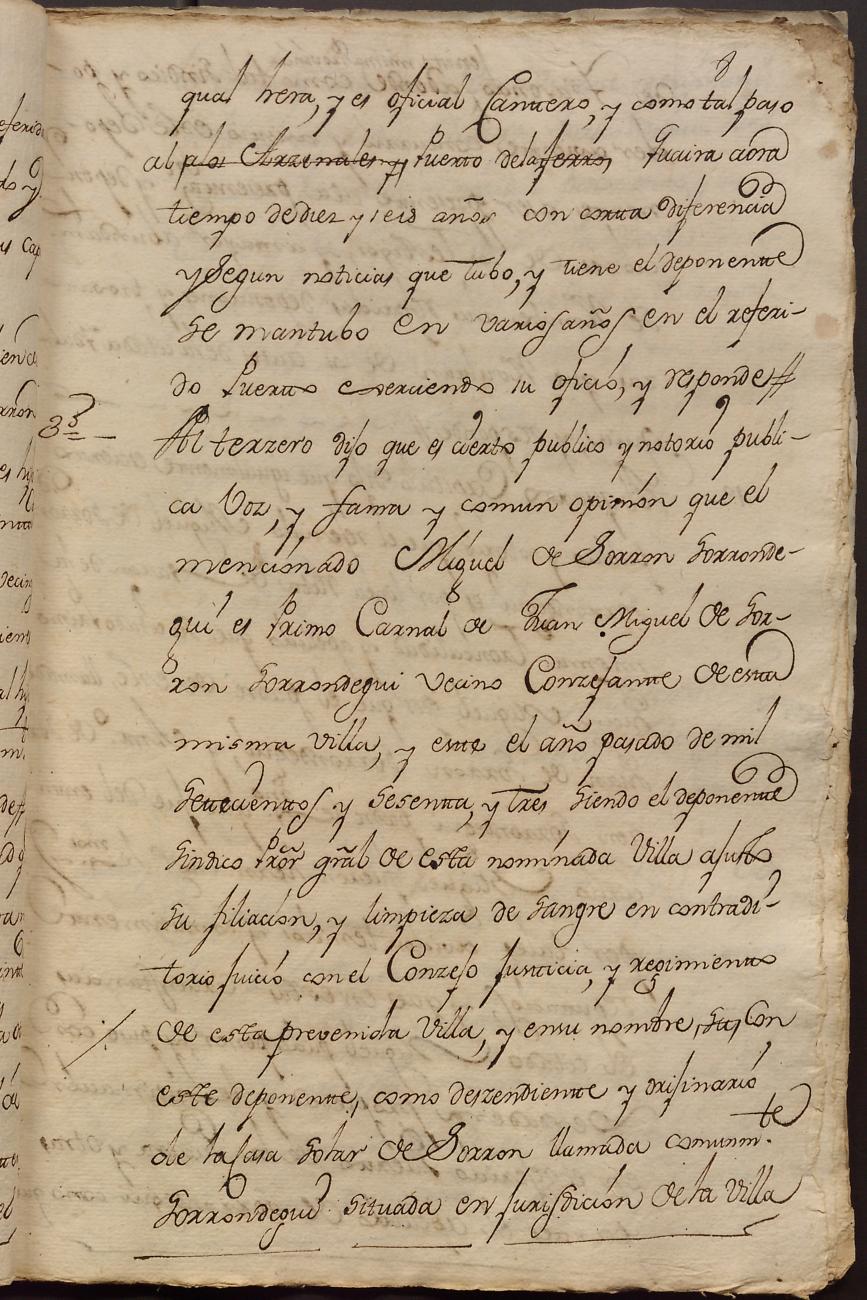 8
qual hera, y es oficial Cantero, y como tal paso
al a los Arzenales y Puerto de la ferro, Guaira aora
tiempo de diez y seis años con corta diferencia
y Segun noticias que tubo, y tiene el deponente
se mantubo en varios años en el referi-
do Puerto exerciendo su oficio, y responde //
3º Al terzero dijo que es cierto publico y notorio publi-
ca Voz, y fama y comun opinion que el
mencionado Miguel de Sorron Sorronde-
gui es Primo Carnal de Juan Miguel de Sor-
ron Sorrondegui Vecino Conzejante de esta
misma Villa, y este el año pasado de mil
Setecientos y Sesenta, y tres siendo el deponente
Sindico Pror gral de esta nominada Villa ajusto
su filiacion, y limpieza de Sangre en contradi-
torio juicio con el Conzejo Justicia, y regimiento
de esta prevenida Villa, y en su nombre, con
este deponente, como deszendiente y orijinario
de la Casa Solar de Sorron llamada comunm.te
Sorrondegui situada en Jurisdicion de la Villa